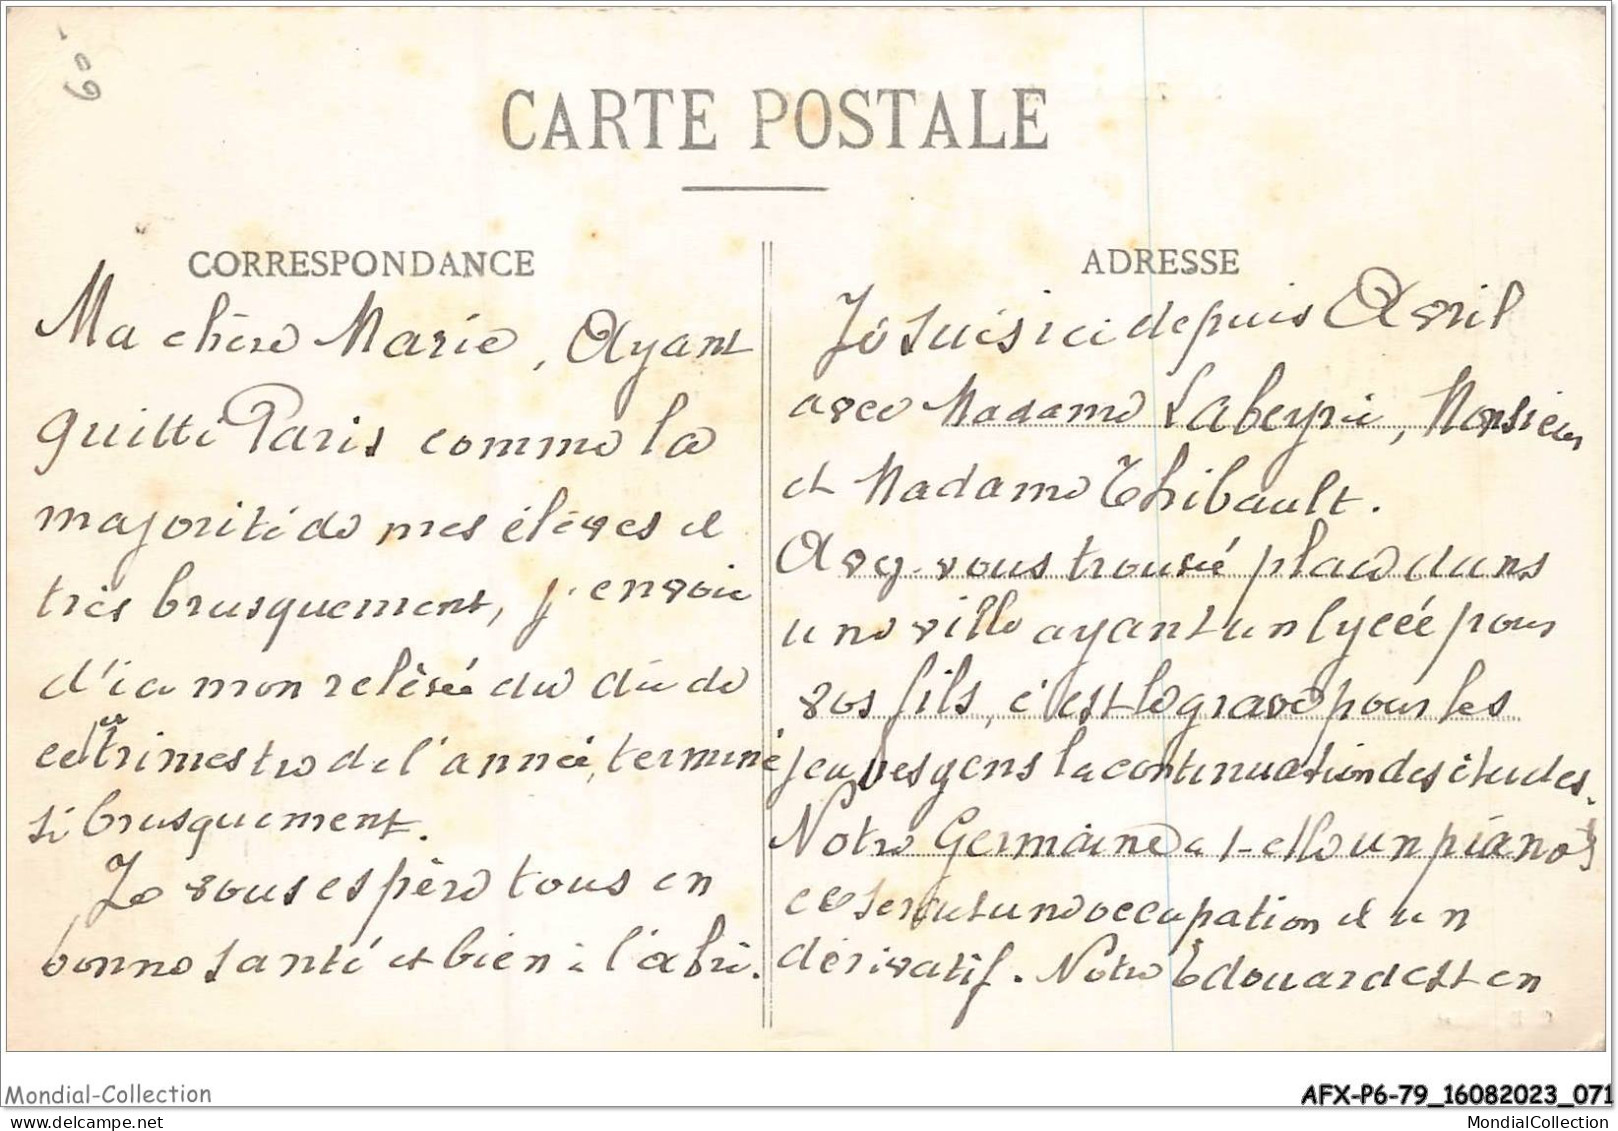 60-
CARTE POSTALE
CORRESPONDANCE
Ma chère Marie, Ayant
quitté Paris comme la
majorité de mes élèves et
très brusquement, j'envoie
d'ici mon relevé du de
ce trimestre de l'année, terminé
si brusquement.
Je vous espère tous en
bonne santé et bien à l'abri.
ADRESSE
Je suis ici depuis Avril
avec Madame Labeyrie, Monsieur
et Madame Thibault.
Avez-vous trouvé place dans
une ville ayant un lycée pour
vos fils, c'est le grave pour les
jeunes gens la continuation des études.
Notre Germaine a t-elle un piano
ce serait une occupation et un
dérivatif. Notre Edouard est en
Mondial-Collection
AFX-P6-79_16082023_071
MondialCollection